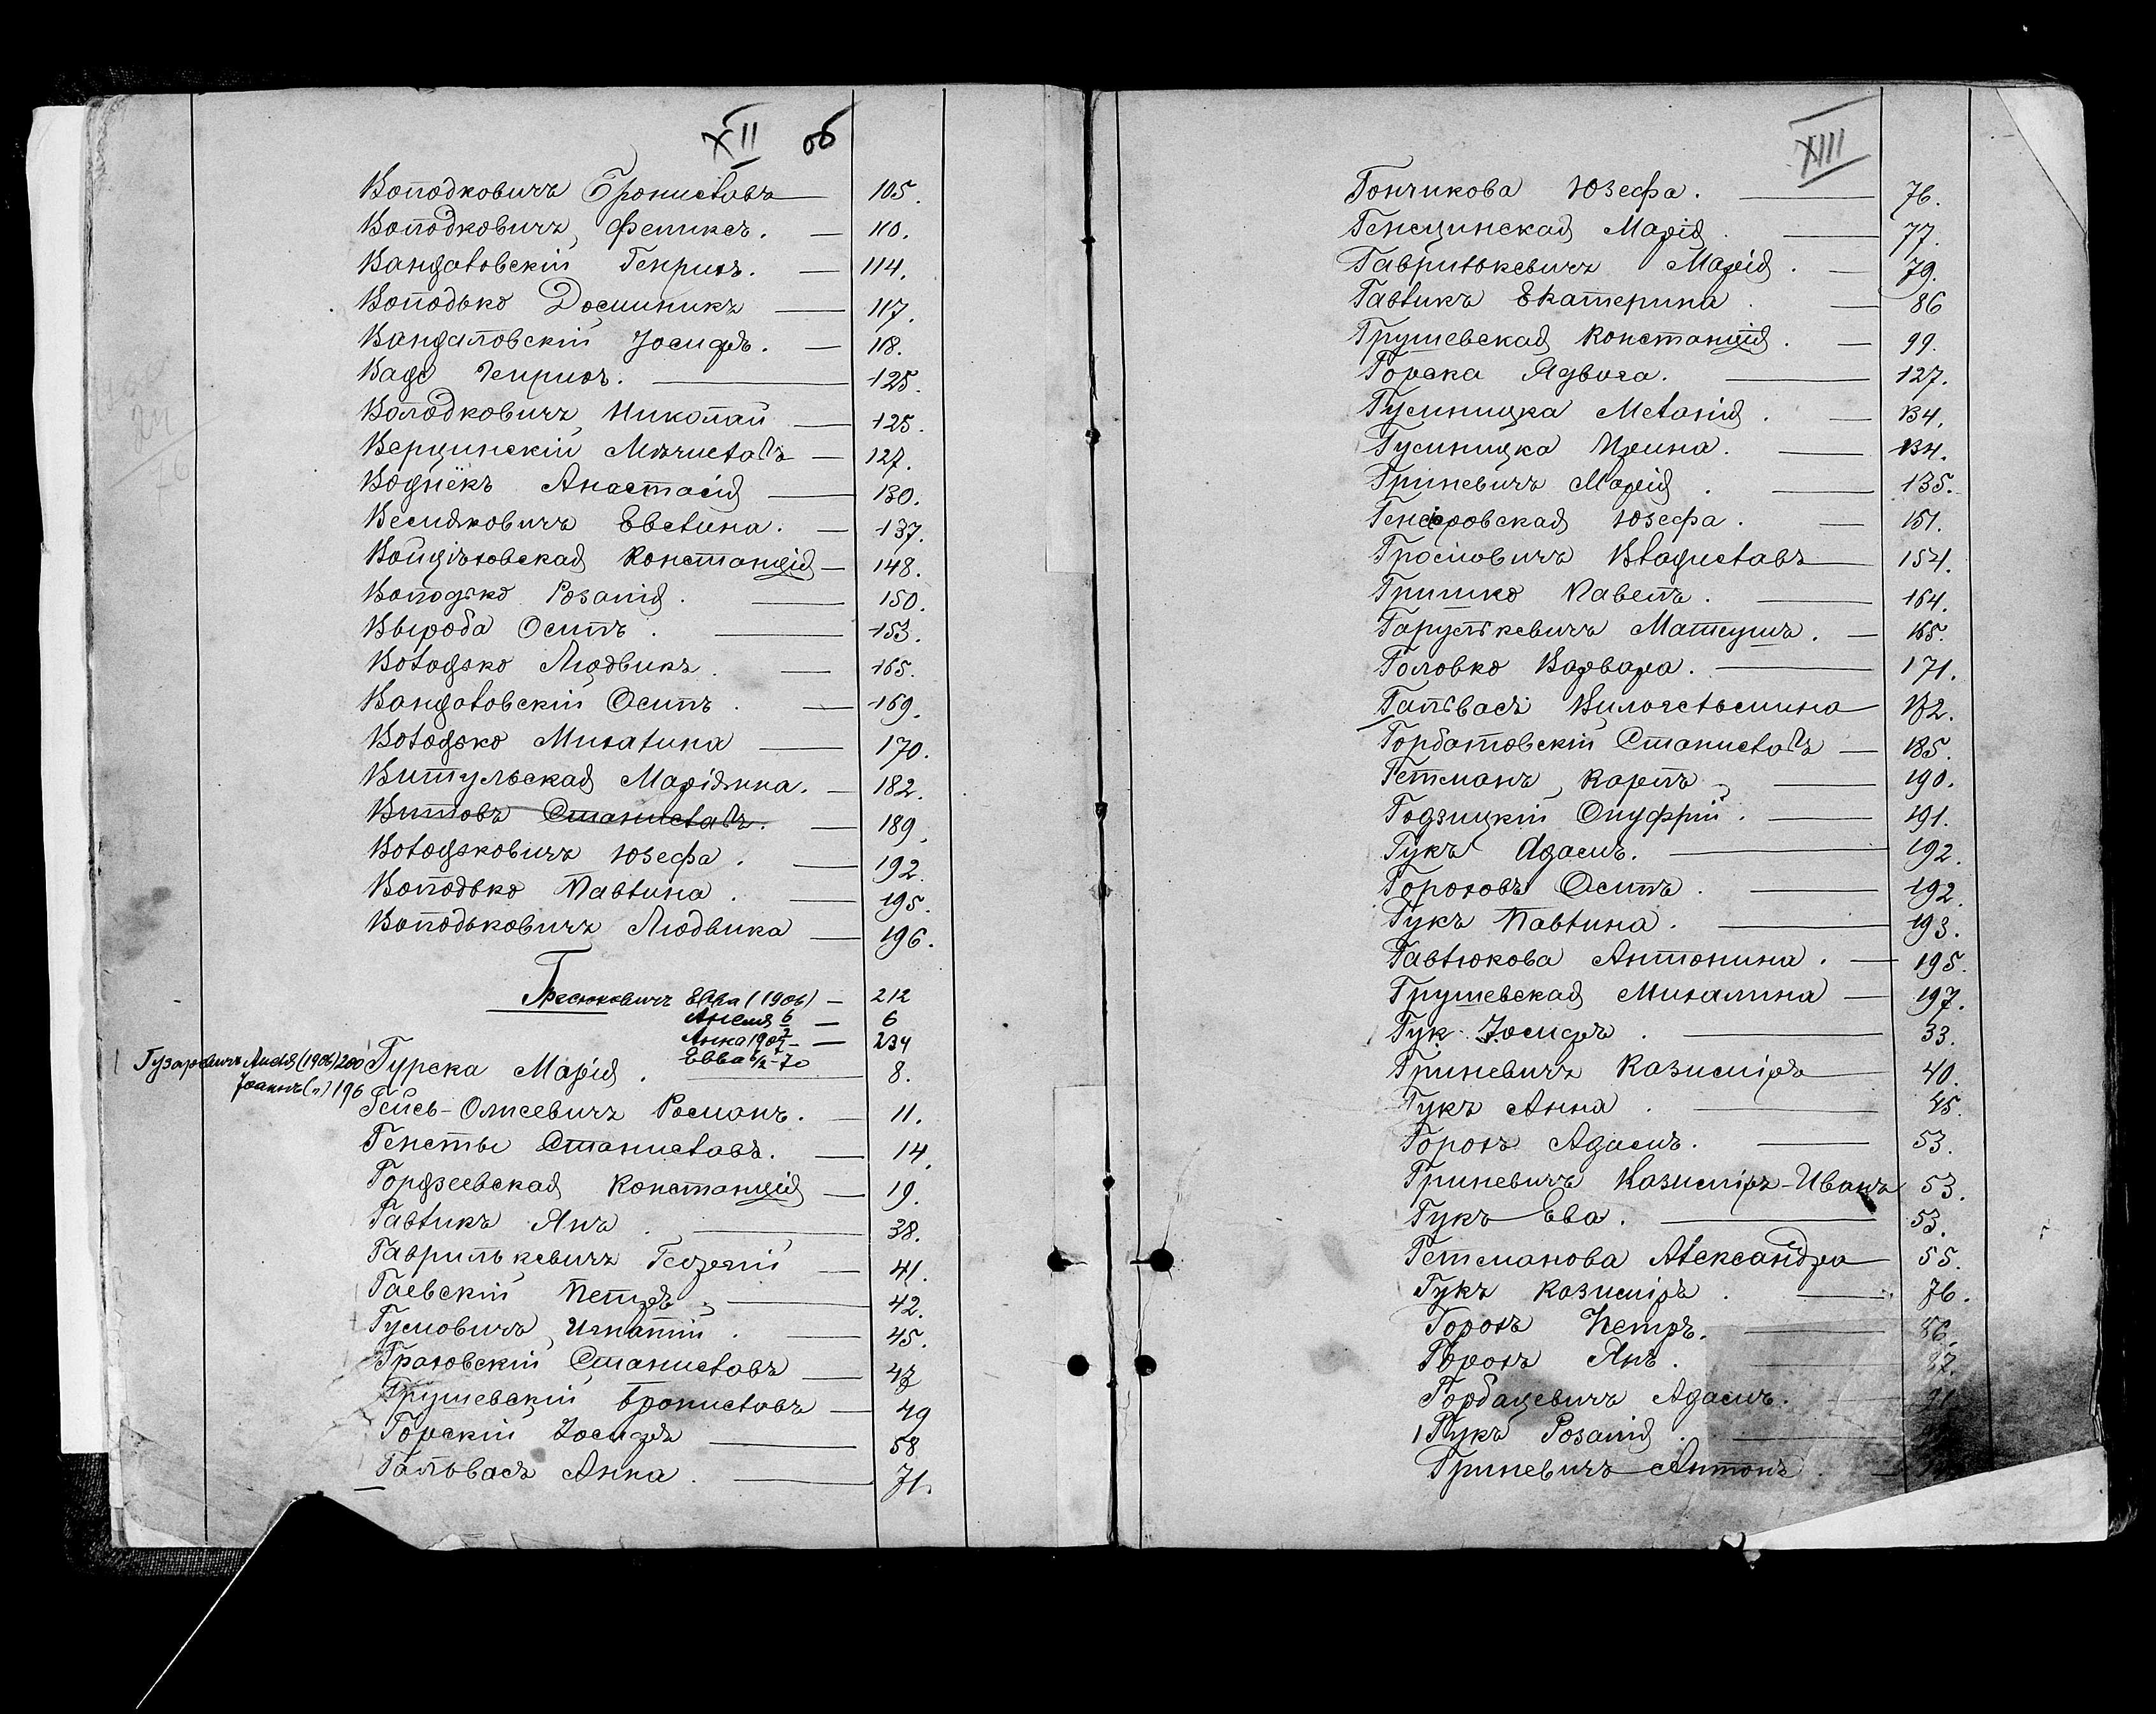 XII об
Володковичъ Брониславъ — 105.
Володковичъ Феликсъ. — 110.
Вандаловскій Генрихъ. — 114.
Володько Доминикъ — 117.
Вандаловскій Іосифъ. — 118.
Вадо Генрихъ. — 125.
Володковичъ Николай — 125.
Верцинскій Мѣчиславъ — 127.
Воднёкъ Анастасія — 130.
Весидковичъ Евелина. — 137.
Войцѣховская Констанція — 148.
Володько Розалія. — 150.
Выроба Осипъ. — 153.
Володько Людвикъ. — 165.
Вандаловскій Осипъ. — 169.
Володько Михалина — 170.
Витульская Маріянна. — 182.
Витовъ Станиславъ. — 189.
Володьковичъ Юзефа. — 192.
Володько Павлина. — 195.
Володьковичъ Людвика — 196.
Г
Евва (1906) — 212
Анеля 6 — 6
Анна 1907 — 234
Евва 6/2 - 70
Гузаревичъ (1906) 200
Іоаннъ (") 196
Гурска Марія. — 8.
Гейсь-Олисевичъ Романъ. — 11.
Генслы Станиславъ. — 14.
Гордзеевская Констанція — 19.
Гавликъ Янъ. — 38.
Гаврилькевичъ — 41.
Гаевскій Петръ — 42.
Гусмовичъ Игнатій. — 45.
Граховскій Станиславъ — 48
Грушевскій Брониславъ — 49
Горскій Іосифъ — 58
Гальвасъ Анна. — 71.
XIII
Гончикова Юзефа. — 76.
Генсцинская Марія. — 77.
Гаврилькевичъ Марія. — 79.
Гавликъ Екатерина. — 86
Грушевская Констанція. — 99.
Горска Ядвига. — 127.
Гусиницка Меланія. — 134.
Гусиницка Ирина. — 134.
Гриневичъ Марія. — 135.
Юзефа. — 151.
Владиславъ — 154.
Гришко Павелъ. — 164.
Гарулькевичъ Матеушъ. — 165.
Головко Варвара. — 171.
Гальвасъ Вильгельмина — 182.
Горбатовскій Станиславъ — 185.
Гетманъ Карлъ — 190.
Годзицкій Онуфрій. — 191.
Гукъ Адамъ. — 192.
Гороховъ Осипъ. — 192.
Гукъ Павлина. — 193.
Гавлюкова Антонина. — 195.
Грушевская Михалина — 197.
Гукъ Іосифъ. — 33.
Гриневичъ Казиміръ — 40.
Гукъ Анна. — 45.
Горохъ Адамъ. — 53.
Гриневичъ Казиміръ-Иванъ 53.
Гукъ Ева. — 53.
Гетманова Александра — 55.
Гукъ Казиміръ. — 76.
Горохъ Петръ. — 86.
Горохъ Янъ. — 87.
Горбацевичъ Адамъ. — 91
Гукъ Розалія. —
Гриневичъ Антонъ. —